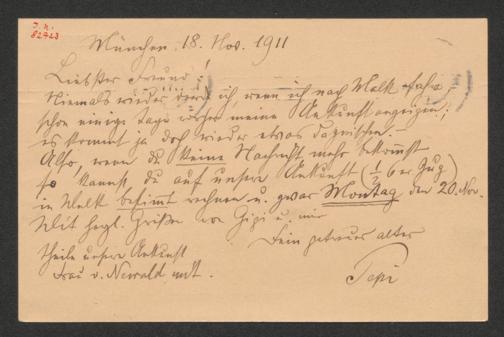 I. N.
82723
München. 18. Nov. 1911
Liebster Freund!
Niemals wieder werd ich, wenn ich nach Melk fahre
schon einige Tage vorher meine Ankunft anzeigen;
es kommt ja doch wieder etwas dazwischen. –
Also, wenn du keine Nachricht mehr bekommst
so kannst du auf unsere Ankunft (½ 6 er Zug)
in Melk bestimt rechnen u. zwar Montag den 20. Nov.
Mit hrzl. Grüßen von Gigi u. mir
Dein getreuer alter
Pepi
theile unsere Ankunft
Frau v. Newald mit.